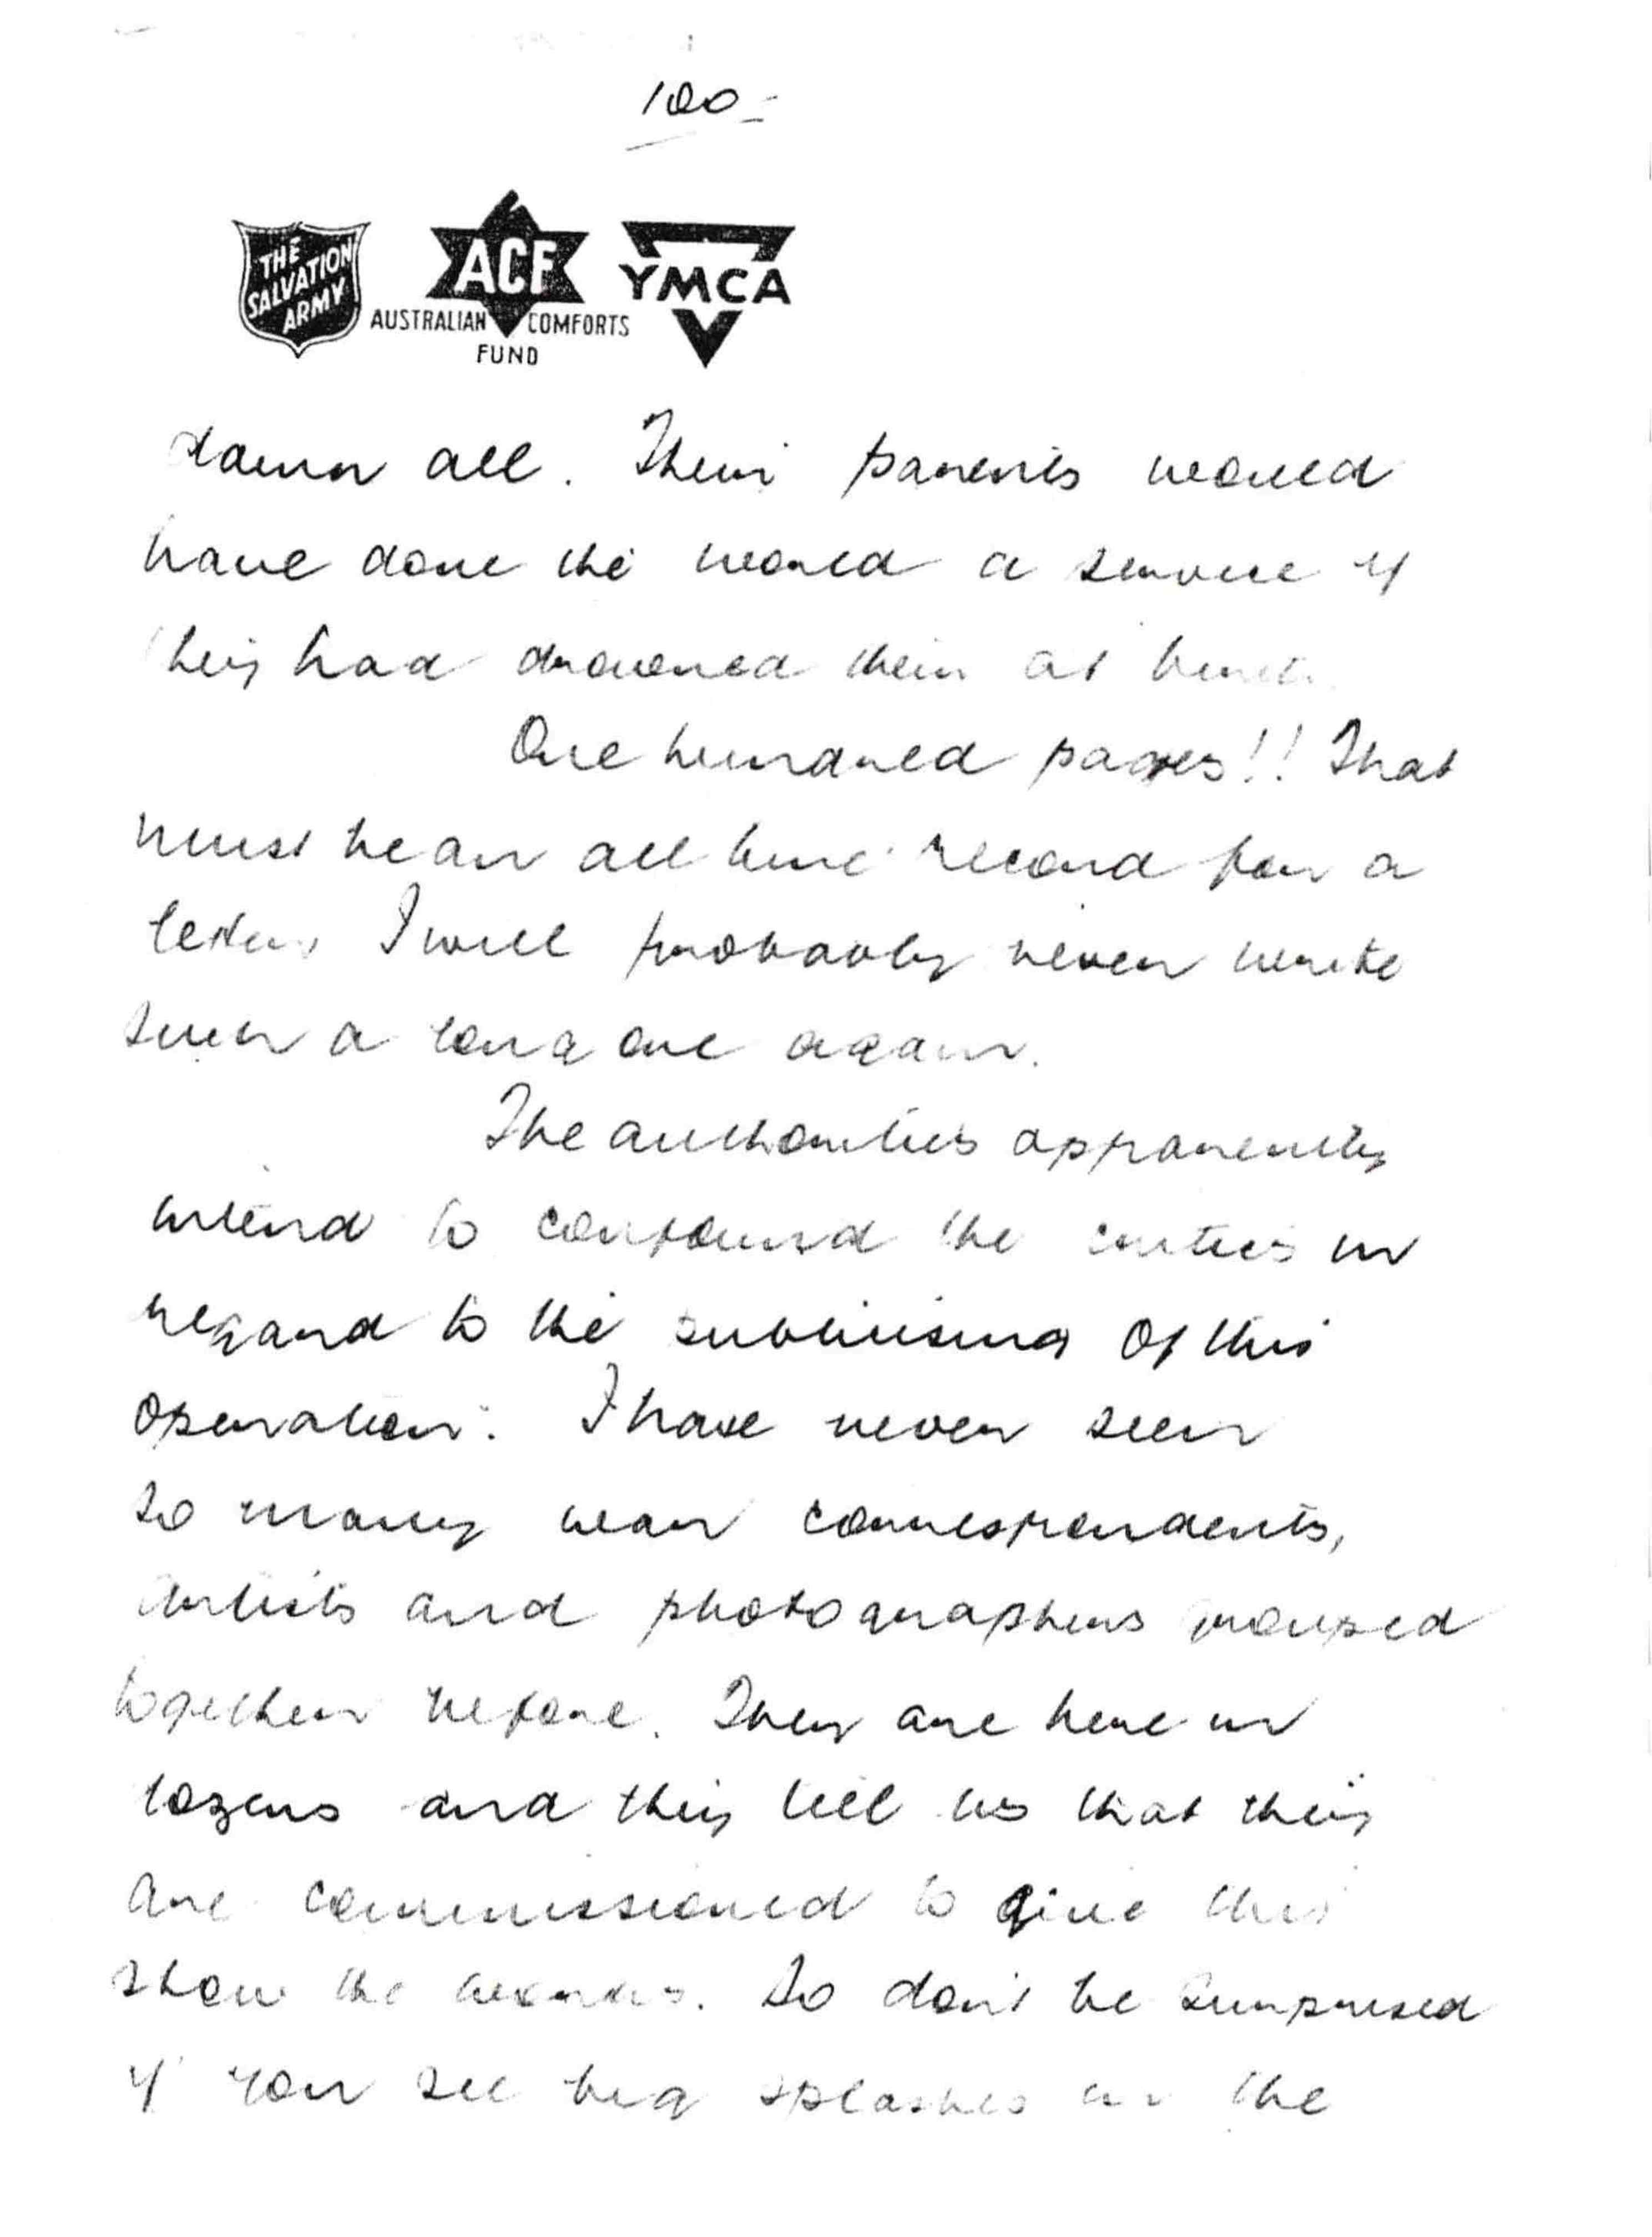 100-
THE
SALVATION
ARMY
ACF
AUSTRALIAN COMFORTS
FUND
YMCA
damn all. Their parents would
have done the world a service if
they had drowned them at birth.
One hundred pages!! That
must be an all time record for a
letter. I will probably never write
such a long one again.
The authorities apparently
intend to confound the critics in
regard to the publicising of this
operation. I have never seen
so many war correspondents,
artists and photographers grouped
together before. They are here in
dozens and they tell us that they
are commissioned to give this
show the works. So don't be surprised
if you see big splashes in the